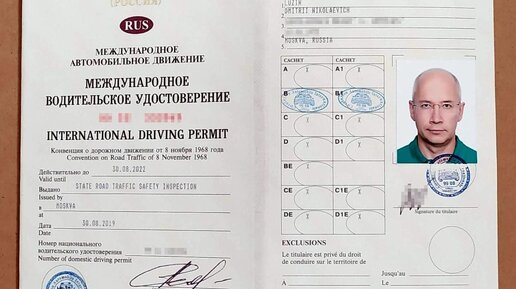 (РОССИЯ)
RUS
МЕЖДУНАРОДНОЕ
АВТОМОБИЛЬНОЕ ДВИЖЕНИЕ
МЕЖДУНАРОДНОЕ
ВОДИТЕЛЬСКОЕ УДОСТОВЕРЕНИЕ
INTERNATIONAL DRIVING PERMIT
Конвенция о дорожном движении от 8 ноября 1968 года
Convention on Road Traffic of 8 November 1968
Действительно до 30.08.2022
Valid until
Выдано STATE ROAD TRAFFIC SAFETY INSPECTION
Issued by
в MOSKVA
at
Дата 30.08.2019
Date
Номер национального
водительского удостоверения
Number of domestic driving permit
LUZIN
DMITRII NIKOLAEVICH
MOSKVA, RUSSIA
CACHET CACHET
A A1
B B1
C C1
D D1
BE
CE C1E
DE D1E
Signature du titulaire
EXCLUSIONS
Le titulaire est privé du droit
de conduire sur le territoire de
Jusqu'au